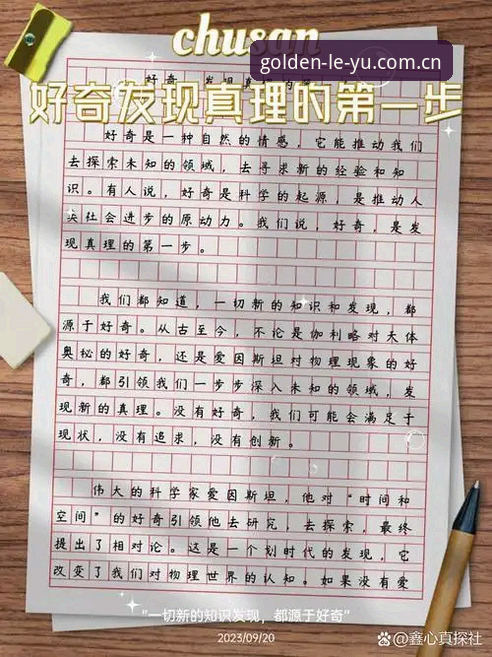 chusan
golden-le-yu.com.cn
好奇发现真理的第一步
好奇是一种自然的情感，它能推动我们
去探索未知的领域，去寻求新的经验和知
识。有人说，好奇是科学的起源，是推动人
类社会进步的原动力。我们说，好奇，是发
现真理的第一步。
我们都知道，一切新的知识和发现，都
源于好奇。从古至今，不论是伽利略对天体
奥秘的好奇，还是爱因斯坦对物理现象的好
奇，都引领我们一步步深入未知的领域，发
现新的真理。没有好奇，我们可能会满足于
现状，没有追求，没有创新。
伟大的科学家爱因斯坦，他对“时间和
空间”的好奇引领他去研究，去探索，最终
提出了相对论。这是一个划时代的发现，它
改变了我们对物理世界的认知。如果没有爱
“一切新的知识发现，都源于好奇”
2023/09/20
@鑫心真探社